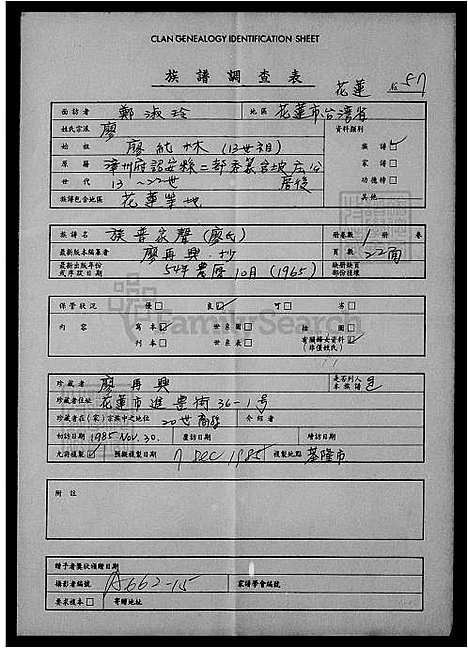 CLAN GENEALOGY IDENTIFICATION SHEET
族譜調查表
花蓮 № 57
面訪者 鄭淑玲 地區 花蓮市台灣省
姓氏宗派 廖 資料類別
始祖 廖 (13世祖) 族譜☑
原籍 漳州府詔安縣二都 家譜□
世代 13~22世 居後 功德榜□
族譜包含地區 花蓮等地 其他
族譜名 族普家聲(廖氏) 冊卷數 1 冊 卷
最新版本編纂者 廖再興.抄 頁數 22面
最新出版年份或序跋日期 54年農曆10月(1965)
保管狀況 優□ 良☑ 可□ 劣□
內容 寫本☑ 世系圖□ 插圖□
刊本□ 世系表□ 有關婦女資料☑
(非僅姓氏)
FamilySearch
珍藏者 廖再興 是否列入本族譜 是
珍藏者住址 花蓮市進豐街36-1号
珍藏者在(宗)宗族中之地位 20世裔孫 介紹者
初訪日期 1985 Nov. 30. 覆訪日期 續訪日期
允許複製☑ 預擬複製日期 7 Dec 1985 複製地點 基隆市
附註
贈予者獎狀頒贈日期
攝影者編號 A662-15 家譜學會編號
要求複本□ 寄贈地址